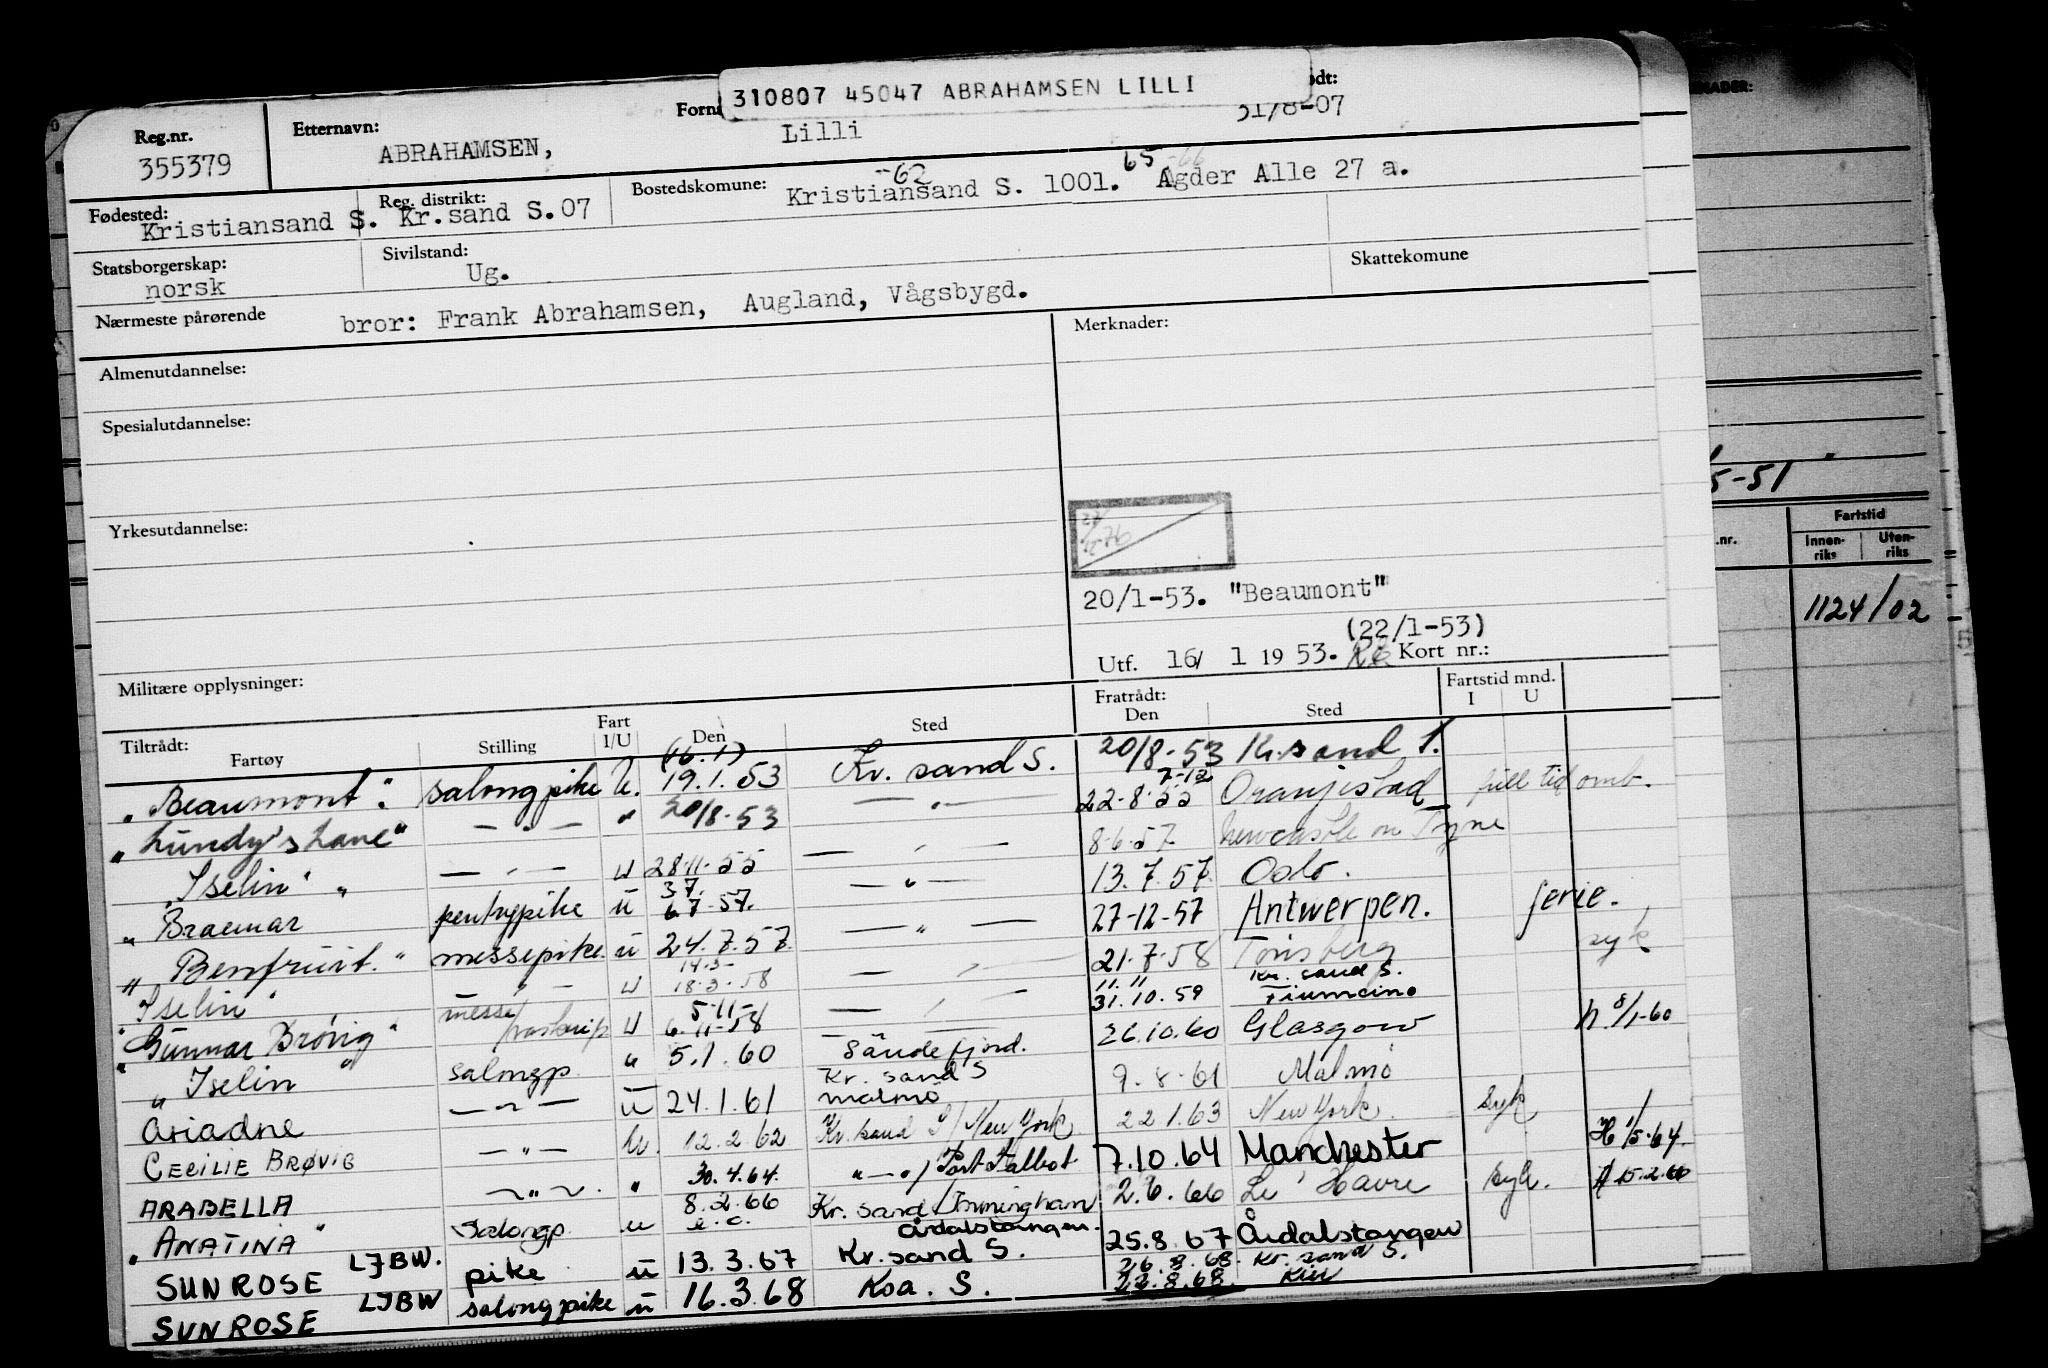 310807 45047 ABRAHAMSEN LILLI
Reg.nr. Etternavn: Forn ødt:
355379 ABRAHAMSEN, Lilli 31/8-07
Fødested: Reg. distrikt: Bostedskomune: -62 65 -66
Kristiansand S. Kr.sand S.07 Kristiansand S. 1001. Agder Alle 27 a.
Statsborgerskap: Sivilstand: Skattekomune
norsk Ug.
Nærmeste pårørende bror: Frank Abrahamsen, Augland, Vågsbygd.
Almenutdannelse: Merknader:
Spesialutdannelse:
Yrkesutdannelse:
20/1-53. "Beaumont"
(22/1-53)
Militære opplysninger: Utf. 16/ 1 19 53. Kort nr.:
Tiltrådt: Fratrådt: Fartstid mnd.
Fartøy Stilling Fart I/U Den Sted Den Sted I U
"Beaumont". salongpike U. (16.1) 19.1.53 Kr. sand S. 20/8-53 Kr.sand S.
"Lundy's Lane" — " — " 20/8-53 — " — 22-8-55 7-12 Oranjestad full tid omb.
"Iselin" — " — u 28-11-55 — " — 8-6-57 Newcastle on Tyne
"Braemar pentrypike u 3.7. 6.7-57. — " — 13.7.57. Oslo.
"Benfruit." messepike. u 24.7.57. — " — 27-12-57 Antwerpen. ferie.
"Iselin" — " — u 14-3- 18-3-58 — " — 21-7-58 Tönsberg syk
"Gunnar Brövig" messe u 5-11- 6-11-58 — " — 11.11 31.10.59 Kr. sand S. Fiumcino
"Iselin" salongp. " 5.1.60 Sandefjord. 26.10.60 Glasgow h. 8/1-60
Ariadne — " — u 24.1.61 Kr. sand S malmö 9.8.61 Malmö
CECILIE BRØVIG — " — u. 12.2.62 Kr. sand S/New York 22.1.63 New York. Syk
ARABELLA — " — . " 30.4.64. " — " / Port Talbot 7.10.64 Manchester H 1/5-64.
"ANATINA" Salongp. u 8.2.66 Kr. sand/Immingham 2.6.66 Le Havre syk.
SUNROSE LJBW. pike u 13.3.67 Kr. sand S. Årdalstangen. 25.8.67 Årdalstangen
SUNROSE LJBW salongpike u 16.3.68 Kr. sand S. Kiel
5-51
Fartstid
.nr. Innenriks Utenriks
1124/02
NADER: